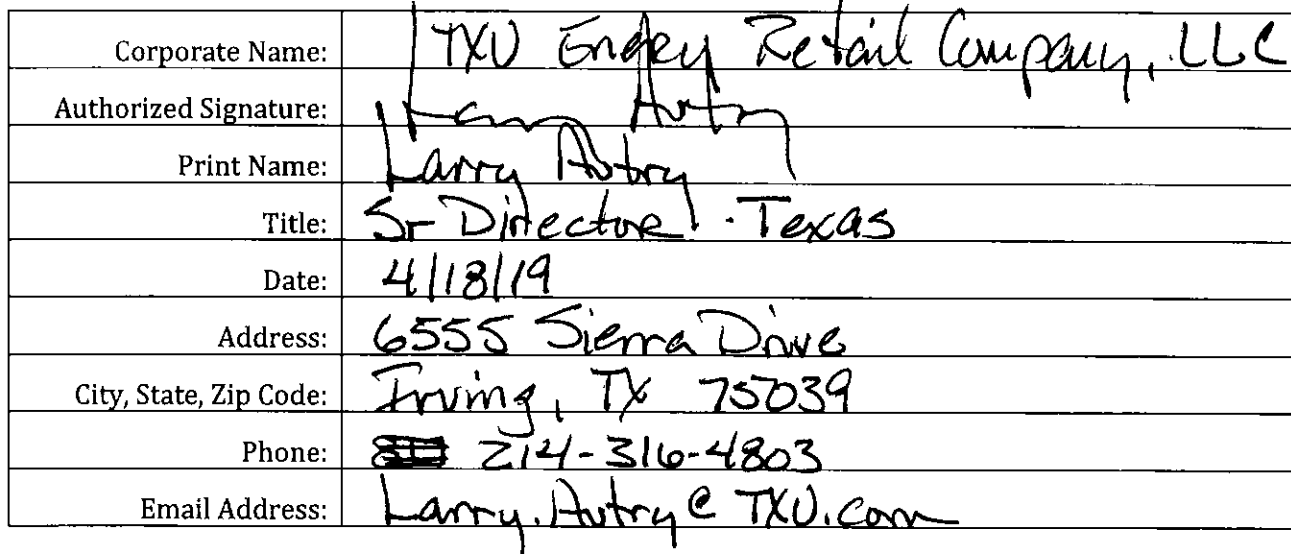 Corporate Name: TXU Energy Retail Company, LLC
Authorized Signature: Larry Autry
Print Name: Larry Autry
Title: Sr Director - Texas
Date: 4/18/19
Address: 6555 Sierra Drive
City, State, Zip Code: Irving, TX 75039
Phone: 214-316-4803
Email Address: Larry.Autry@TXU.com